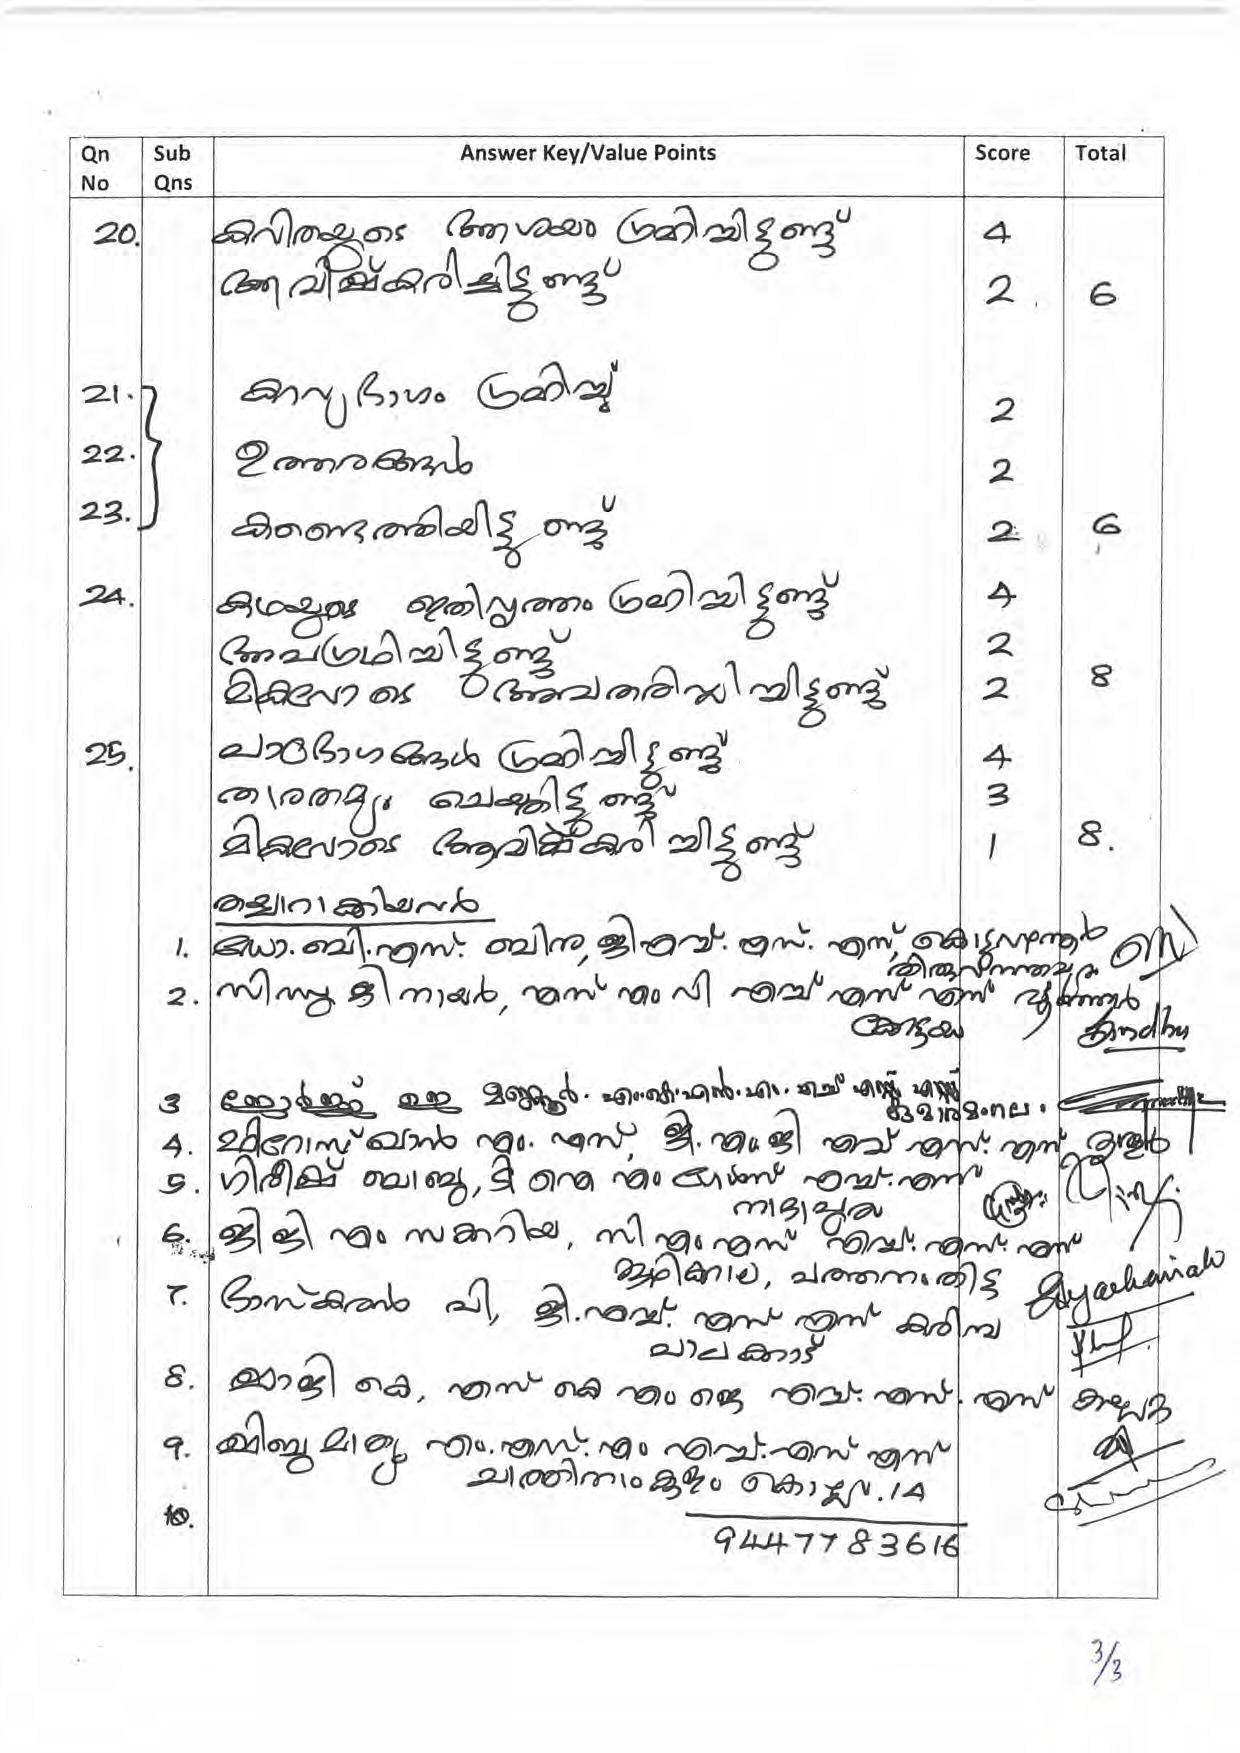 Qn No Sub Qns Answer Key/Value Points Score Total
20. കവിതയുടെ ആശയം ഗ്രഹിച്ചിട്ടുണ്ട് 4
ആവിഷ്കരിച്ചിട്ടുണ്ട് 2 6
21. കാവ്യഭാഗം ഗ്രഹിച്ച് 2
22. ഉത്തരങ്ങൾ 2
23. കണ്ടെത്തിയിട്ടുണ്ട് 2 6
24. കഥയുടെ ഇതിവൃത്തം ഗ്രഹിച്ചിട്ടുണ്ട് 4
അപഗ്രഥിച്ചിട്ടുണ്ട് 2
മികവോടെ അവതരിപ്പിച്ചിട്ടുണ്ട് 2 8
25. പാഠഭാഗങ്ങൾ ഗ്രഹിച്ചിട്ടുണ്ട് 4
താരതമ്യം ചെയ്തിട്ടുണ്ട് 3
മികവോടെ ആവിഷ്കരിച്ചിട്ടുണ്ട് 1 8.
തയ്യാറാക്കിയവർ
1. ഡോ. ബി. എസ്. ബിനു, ജി എച്ച്. എസ്. എസ്,
തിരുവനന്തപുരം
2. സിന്ധു ജി നായർ, എസ് എം വി എച്ച് എസ് എസ് പൂഞ്ഞാർ
കോട്ടയം Sindhu
3 ജോർജ്ജ്
കുമാരമംഗലം.
4. ഫിറോസ് ഖാൻ എം. എസ്, ജി. എം ജി എച്ച് എസ്. എസ്
5. ഗിരീഷ് ബാബു, ടി ഐ എം ഗേൾസ് എച്ച്. എസ്
നാദാപുരം
6. ജിജി എം സക്കറിയ, സി എം എസ് എച്ച്. എസ്. എസ്
കുഴിക്കാല, പത്തനംതിട്ട
7. ഭാസ്കരൻ പി, ജി. എച്ച്. എസ് എസ് കരിമ്പ
പാലക്കാട്
8. ഷാജി കെ, എസ് കെ എം ജെ എച്ച്. എസ്. എസ് കല്പറ്റ
9. ഷിബു മാത്യു എം. എസ്. എം എച്ച്. എസ് എസ്
ചാത്തിനാംകുളം കൊല്ലം. 14
10.
9447783616
3/3